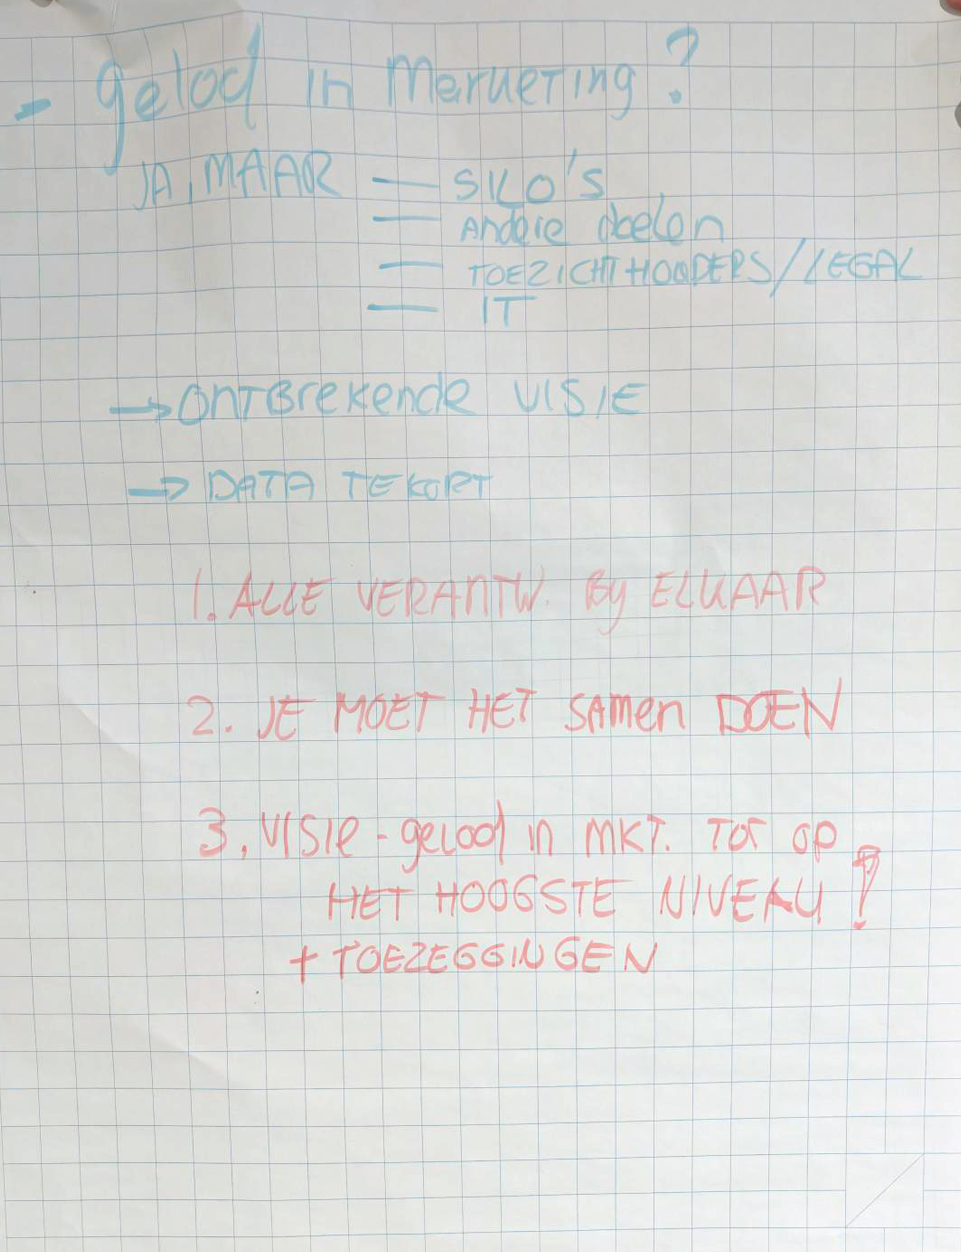 - Geloof in Marketing?
JA, MAAR — SILO'S
— Andere doelen
— TOEZICHTHOUDERS/LEGAL
— IT
→ ONTBrekende VISIE
→ DATA TEKORT
1. ALLE VERANTW. By ELKAAR
2. JE MOET HET SAMEN DOEN
3. VISIE - geloof in MKT. TOT OP
HET HOOGSTE NIVEAU!
+ TOEZEGGINGEN